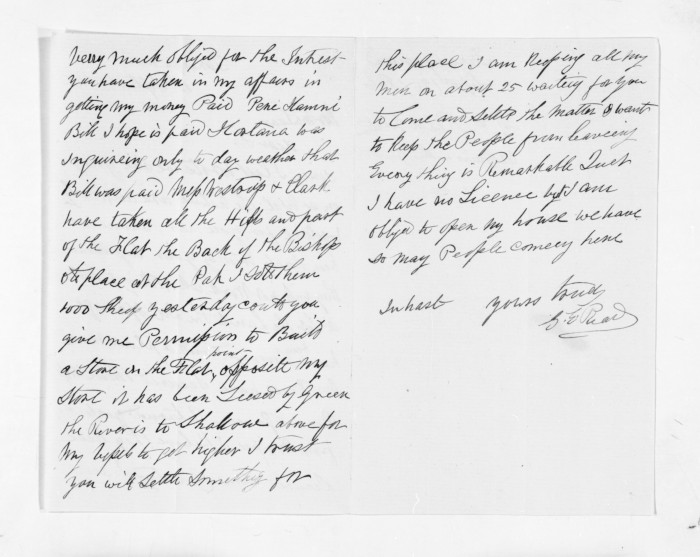 Verry much oblijed for the Intrest
you have taken in my affairs in
getting my money Paid Pene Hamni
Bill I hope is paid Hortana was
inquireing only to day weather that
Bill was paid Messrs Westrup & Clark
have taken all the Hills and part
of the Flat the Back of the Bishops
old place at the Pah I sold them
1000 Sheep yesterday could you
give me Permission to Build
a Store on the Flat point opposite my
Store it has been Leased by Green
the River is to Shallow above for
my vessels to get higher I trust
you will settle Something for
this place I am Keeping all my
Men on about 25 waiting for you
to Come and Settle the Matter I want
to Keep the People from leaveing
Every thing is Remarkable Quet
I have no Licence but I am
oblijed to open my house we have
so many People comeing here
In hast yours truly
G. E. Read